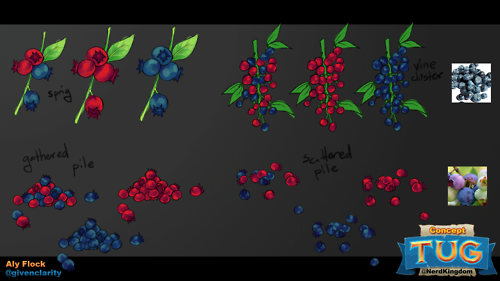 sprig
vine
clstor
gathered
pile
scattered
pile
Aly Flock
@givenclarity
Concept
TUG
@NerdKingdom